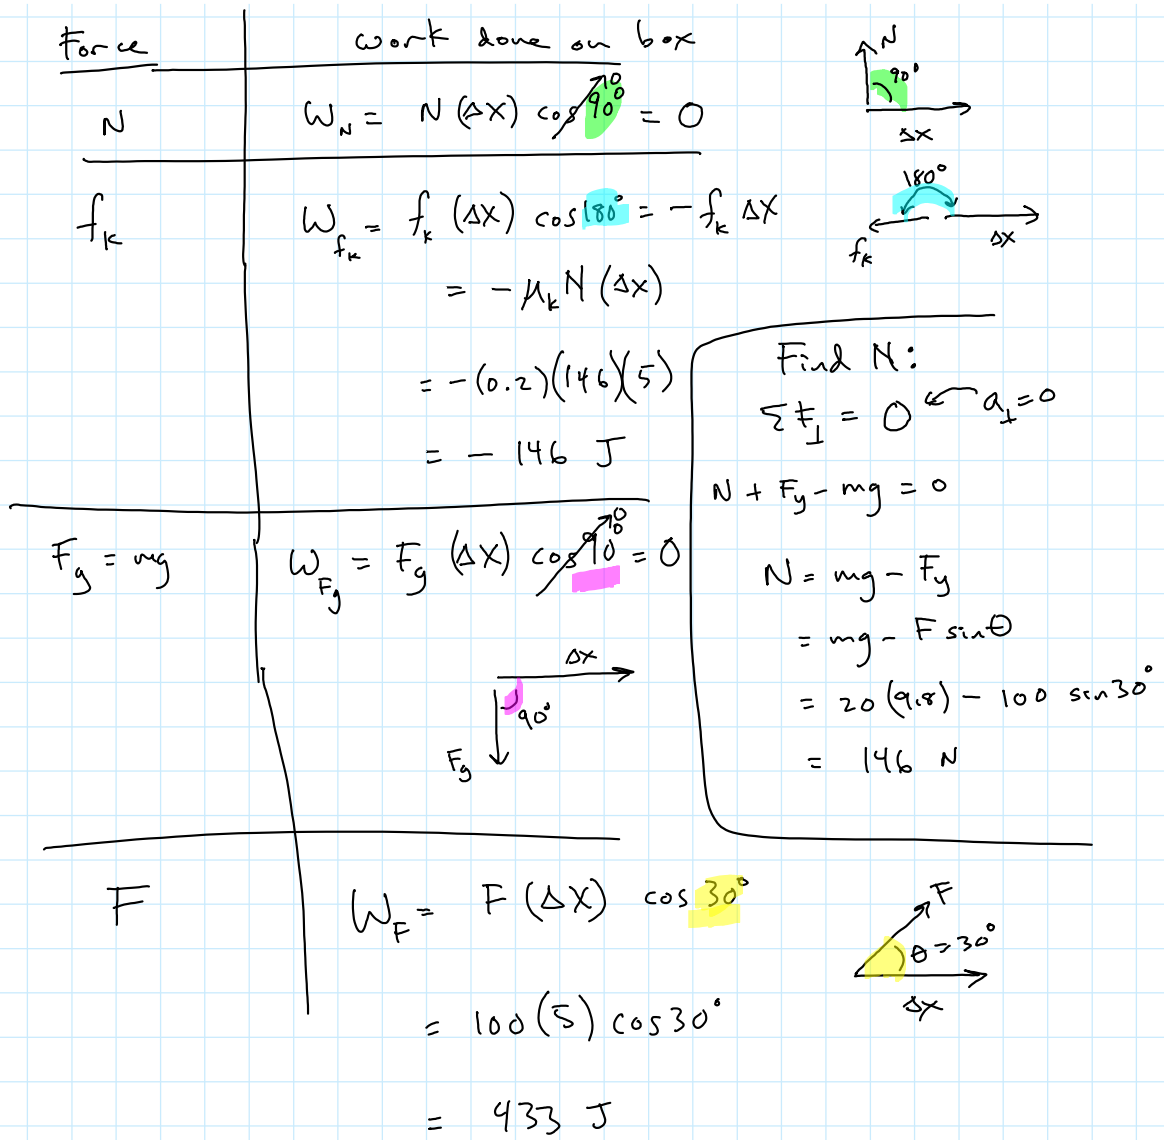 Force
work done on box
N
W_N = N (Δx) cos 90° = 0
0
N
90°
Δx
f_k
W_{f_k} = f_k (Δx) cos 180° = - f_k Δx
180°
f_k
Δx
= - μ_k N (Δx)
= - (0.2)(146)(5)
= - 146 J
Find N:
ΣF_⊥ = 0 ← a_⊥ = 0
N + F_y - mg = 0
N = mg - F_y
= mg - F sinθ
= 20 (9.8) - 100 sin 30°
= 146 N
F_g = mg
W_{F_g} = F_g (Δx) cos 90° = 0
0
Δx
90°
F_g
F
W_F = F (Δx) cos 30°
F
θ = 30°
Δx
= 100 (5) cos 30°
= 433 J